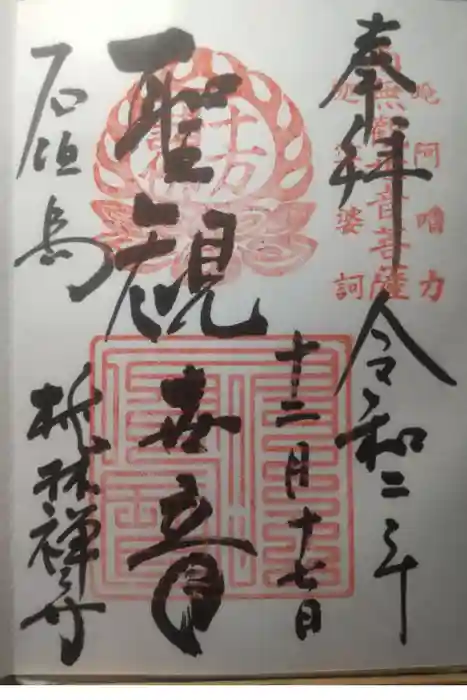 奉拝 令和二年
唵阿嚕力
南無観世音菩薩
迦娑婆訶
十二月十七日
聖観世音
石垣島 桃林禅寺